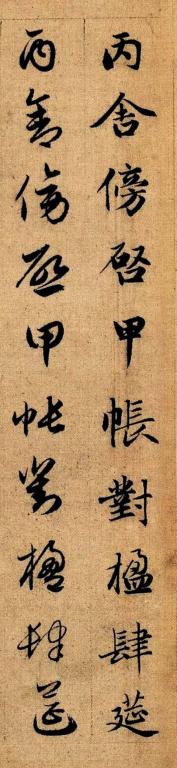 丙舍傍啓甲帳對楹肆筵
丙舍傍啓甲帳對楹肆筵